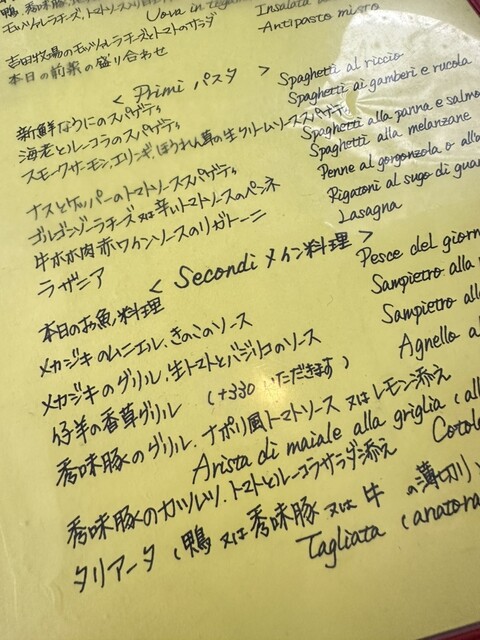 鴨、秀味豚、
モッツァレラチーズ、トマトソース
Uova in
Insalata
吉田牧場のモッツァレラチーズとトマトのサラダ
Antipasto misto
本日の前菜の盛り合わせ
< Primi パスタ >
新鮮なうにのスパゲティ
Spaghetti al riccio
海老とルーコラのスパゲティ
Spaghetti ai gamberi e rucola
スモークサーモン、エリンギ、ほうれん草の生クリームソーススパゲティ
Spaghetti alla panna e salmo
ナスとケッパーのトマトソーススパゲティ
Spaghetti alla melanzane
ゴルゴンゾーラチーズ又は辛いトマトソースのペンネ
Penne al gorgonzola o alla
牛ホホ肉赤ワインソースのリガトーニ
Rigatoni al sugo di gua
ラザニア
Lasagna
< Secondi メイン料理 >
本日のお魚料理
Pesce del giorn
メカジキのムニエル、きのこのソース
Sampietro alla
メカジキのグリル、生トマトとバジリコのソース
Sampietro alla
仔羊の香草グリル (+330いただきます)
Agnello al
秀味豚のグリル、ナポリ風トマトソース又はレモン添え
Arista di maiale alla griglia (all
秀味豚のカツレツ、トマトとルーコラサラダ添え
Cotol
タリアータ (鴨又は秀味豚又は牛の薄切り
Tagliata (anatra